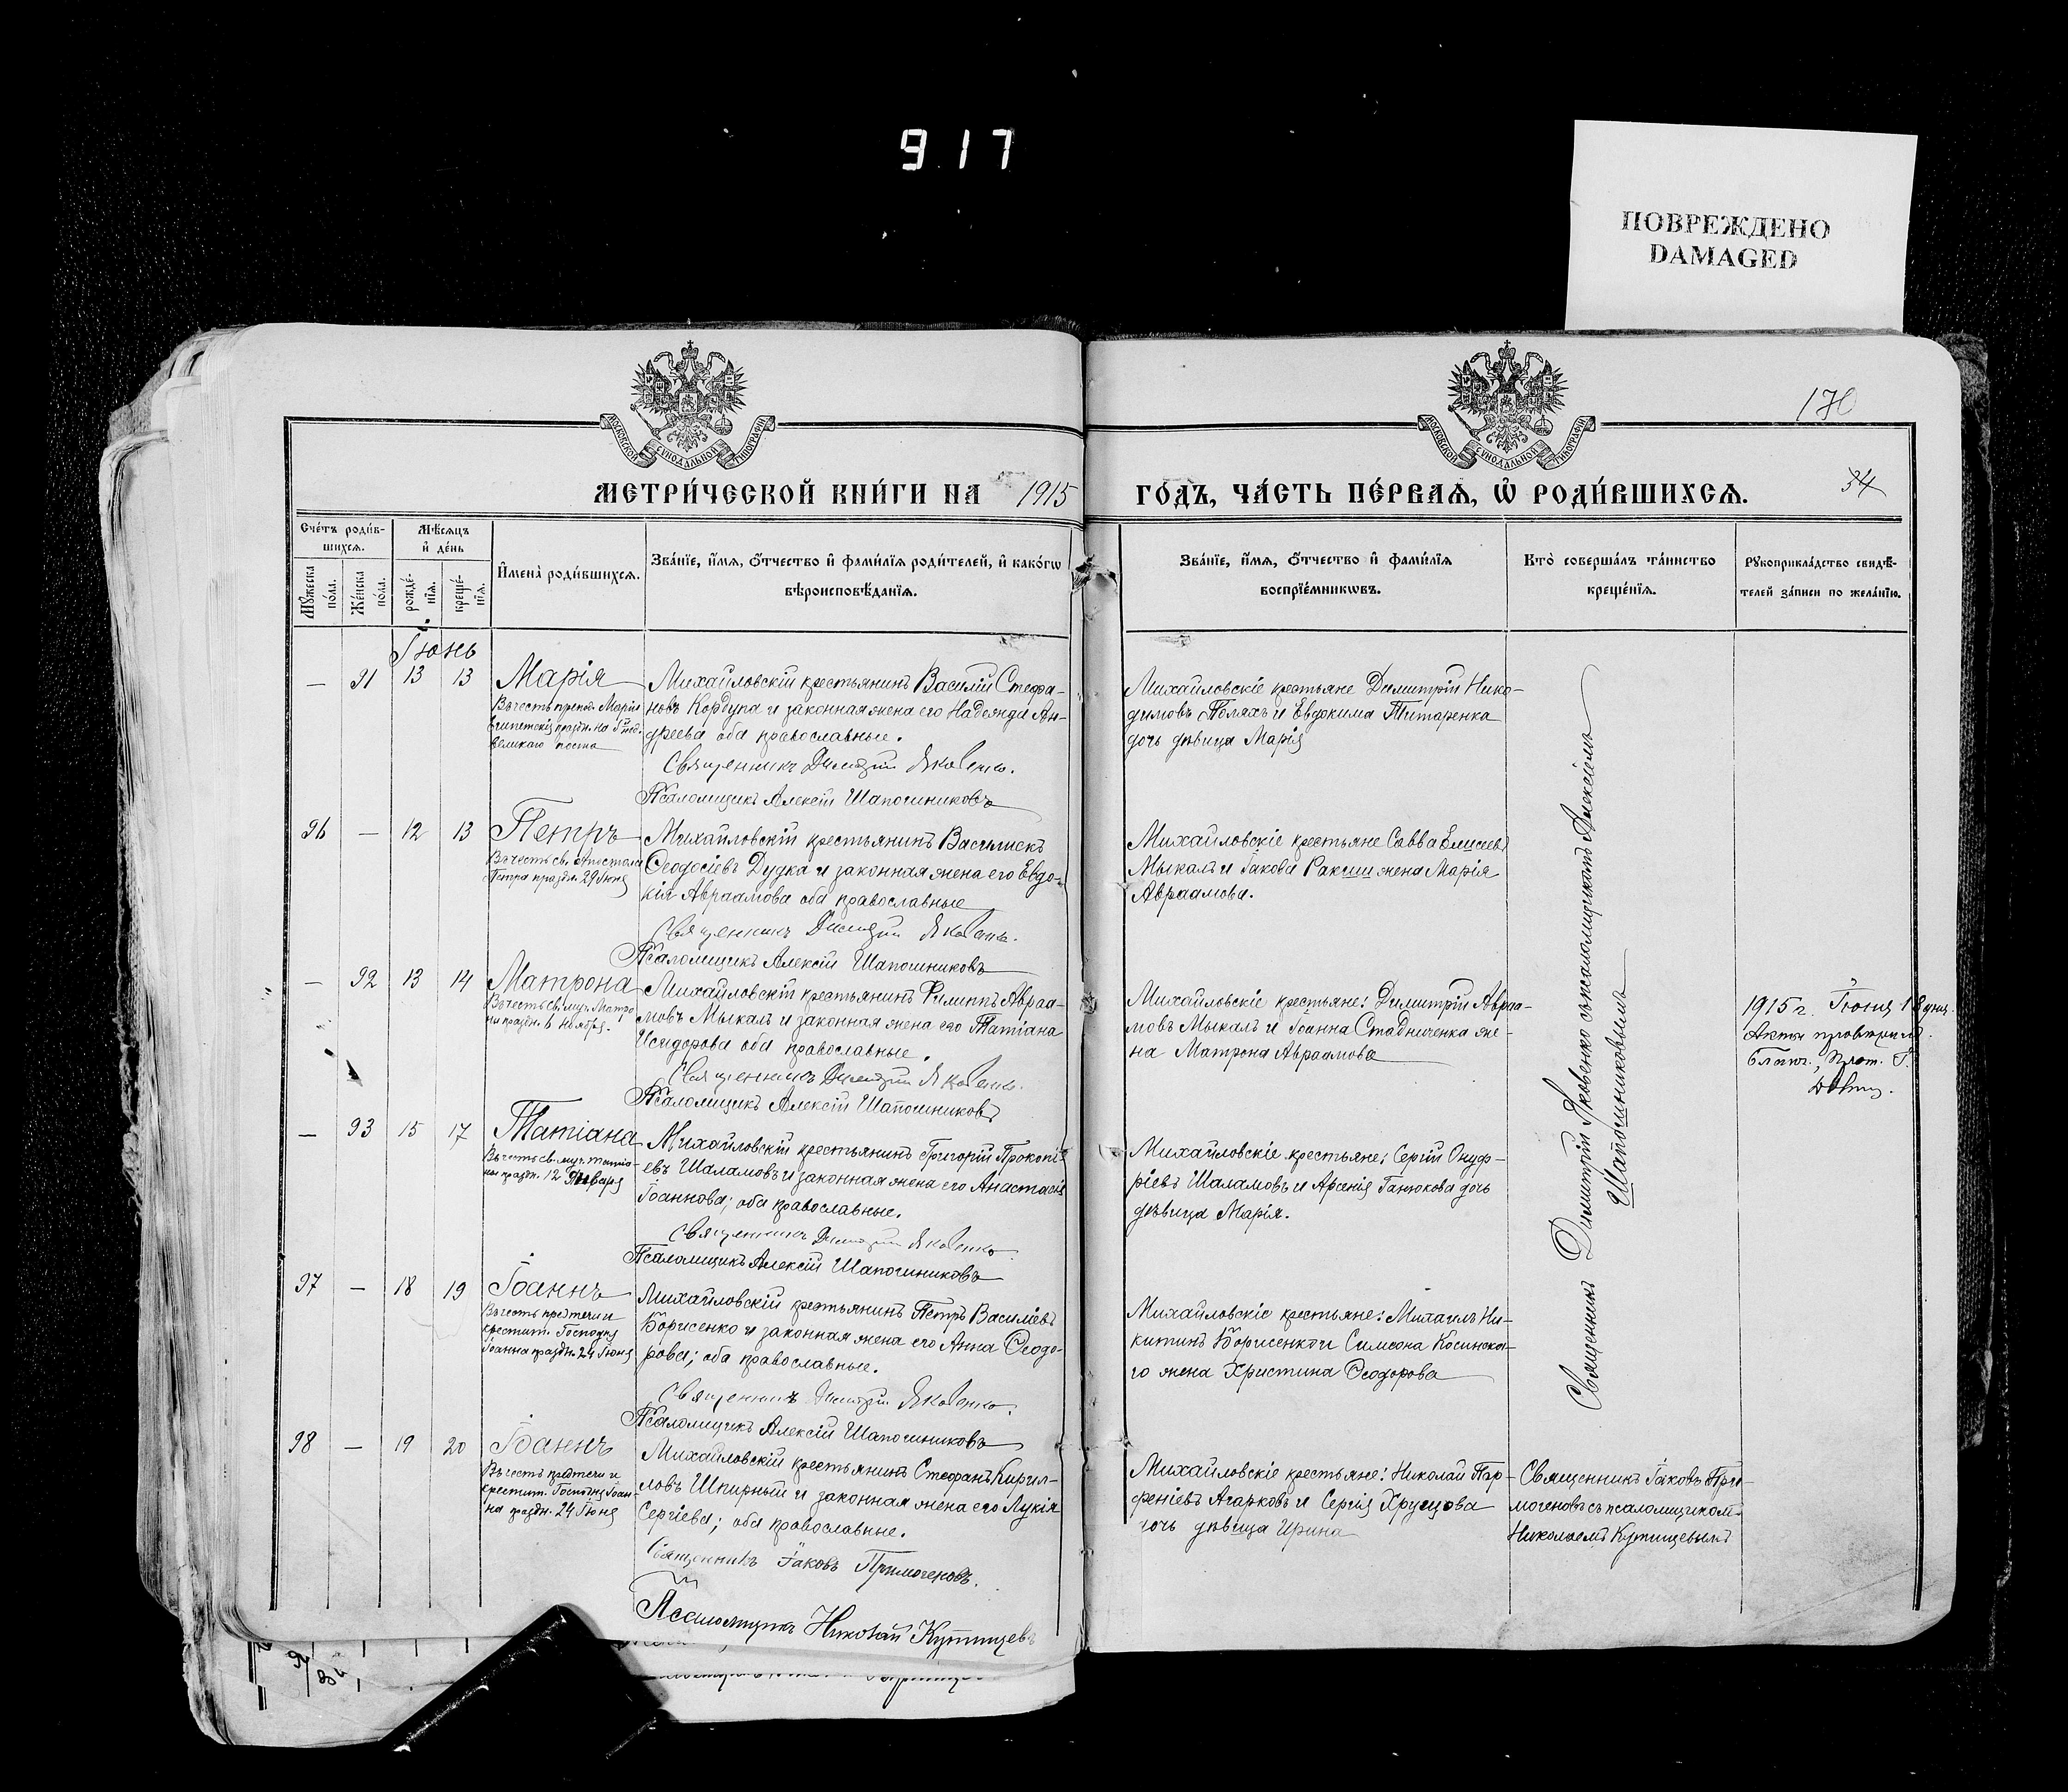 917
ПОВРЕЖДЕНО
DAMAGED
МОСКОВСКОЙ СѴНОДАЛЬНОЙ ТИПОГРАФІИ
МОСКОВСКОЙ СѴНОДАЛЬНОЙ ТИПОГРАФІИ
170
МЕТРИ́ЧЕСКОЙ КНИ́ГИ НА 1915 ГО́ДЪ, ЧА́СТЬ ПЕ́РВАѦ, Ѡ҆ РОДИ́ВШИХСѦ.
34
Сче́тъ роди́в-
шихсѧ.
Мѣ́сѧцъ
и҆ де́нь
Мꙋ́жеска по́ла.
Же́нска по́ла.
рожде́нїѧ.
креще́нїѧ.
И҆мена̀ роди́вшихсѧ.
Зва́нїе, и҆́мѧ, о҆́тчество и҆ фами́лїѧ роди́телей, и҆ како́гѡ
вѣроисповѣ́данїѧ.
Зва́нїе, и҆́мѧ, о҆́тчество и҆ фами́лїѧ
воспрїе́мникѡвъ.
Кто̀ соверша́лъ та́инство
креще́нїѧ.
Рꙋкоприкла́дство свидѣ́-
телей за́писи по жела́нїю.
Іюнь
— 91 13 13 Марія
Въ честь препод. Маріи
Египетскія праздн. на 5 нед.
великаго поста
Михайловскій крестьянинъ Василій Стефа-
новъ Кордупа и законная жена его Надежда Ан-
дреева оба православные.
Священникъ Димитрій Яковенко.
Псаломщикъ Алексій Шапошниковъ
Михайловскіе крестьяне Димитрій Нико-
димовъ Поляхъ и Евдокима Титаренка
дочь дѣвица Марія
96 — 12 13 Петръ
Въ честь св. Апостола
Петра праздн. 29 Іюня
Михайловскій крестьянинъ Василискъ
Ѳеодосіевъ Дудка и законная жена его Евдо-
кія Авраамова оба православные
Священникъ Димитрій Яковенко.
Псаломщикъ Алексій Шапошниковъ
Михайловскіе крестьяне Савва Елисеевъ
Мыкалъ и Іакова Ракши жена Марія
Авраамова.
— 92 13 14 Матрона
Въ честь св. муч. Матро
ны праздн. 6 ноября.
Михайловскій крестьянинъ Филиппъ Авраа-
мовъ Мыкалъ и законная жена его Татіана
Исидорова оба православные.
Священникъ Димитрій Яковенко.
Псаломщикъ Алексій Шапошниковъ
Михайловскіе крестьяне: Димитрій Авраа-
мовъ Мыкалъ и Іоанна Стадниченка же-
на Матрона Авраамова
1915 г. Іюня 18 дня.
Акты провѣрилъ
Благоч., Прот. Г.
— 93 15 17 Татіана
Въ честь св. муч. Татіа-
ны праздн. 12 Января
Михайловскій крестьянинъ Григорій Прокопі-
евъ Шаламовъ и законная жена его Анастасія
Іоаннова; оба православные.
Священникъ Димитрій Яковенко
Псаломщикъ Алексій Шапошниковъ
Михайловскіе крестьяне: Сергій Онуф-
ріевъ Шаламовъ и Арсенія Ганюкова дочь
дѣвица Марія.
97 — 18 19 Іоаннъ
Въ честь предтечи и
крестит. Господня
Іоанна праздн. 24 Іюня
Михайловскій крестьянинъ Петръ Василіевъ
Борисенко и законная жена его Анна Ѳеодо-
рова; оба православные.
Священникъ Димитрій Яковенко.
Псаломщикъ Алексій Шапошниковъ
Михайловскіе крестьяне: Михаилъ Ни-
китинъ Борисенко и Симеона Косинска-
го жена Христина Ѳеодорова
Священникъ Димитрій Яковенко съ псаломщикомъ Алексіемъ
Шапошниковымъ
98 — 19 20 Іоаннъ
Въ честь предтечи и
крестит. Господня Іоан-
на праздн. 24 Іюня
Михайловскій крестьянинъ Стефанъ Кирил-
ловъ Шпирный и законная жена его Лукія
Сергіева; оба православные.
Священникъ Іаковъ Примогеновъ.
Псаломщикъ Николай Купишцевъ
Михайловскіе крестьяне: Николай Пар-
феніевъ Агарковъ и Сергія Хрущова
дочь дѣвица Ирина
Священникъ Іаковъ При-
могеновъ съ псаломщикомъ
Николаемъ